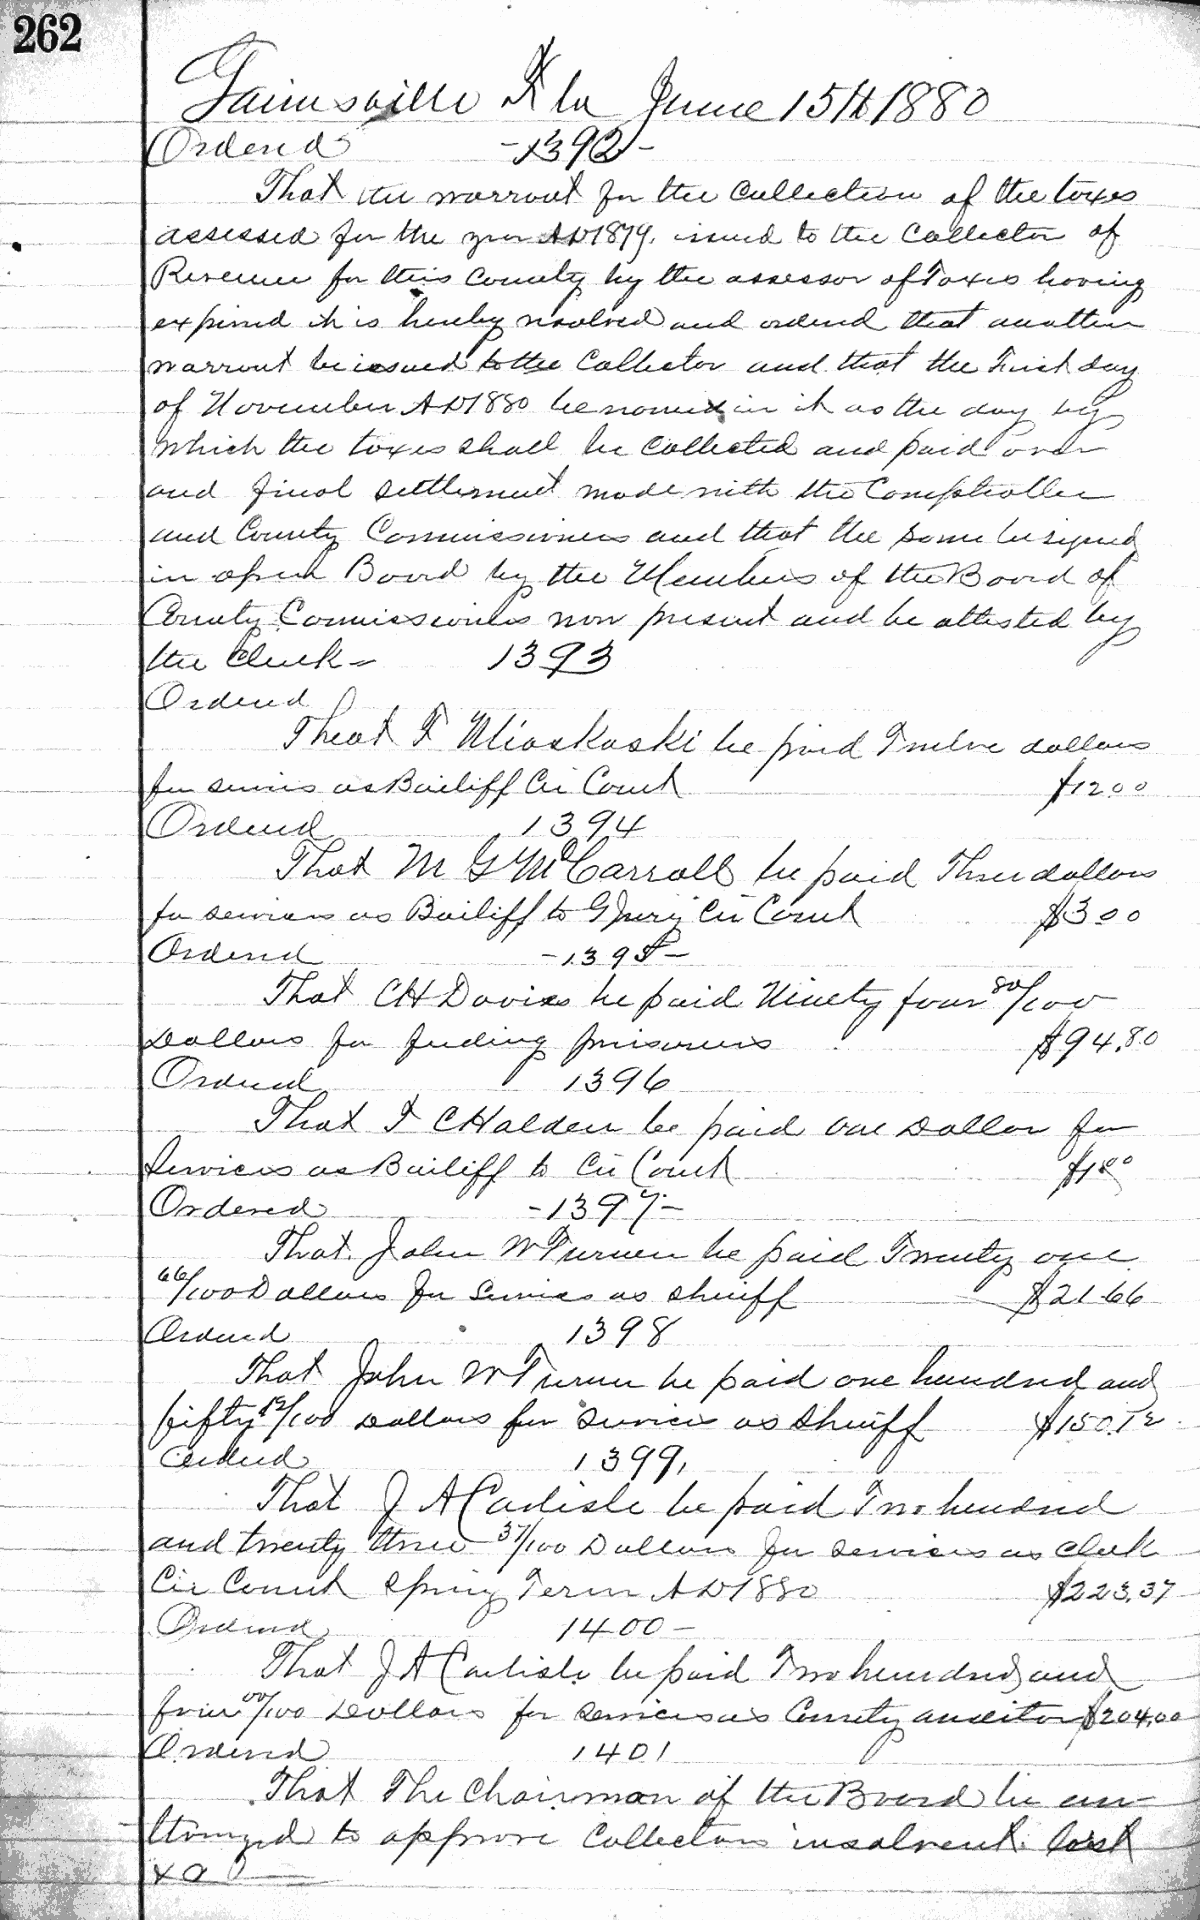 262
Gainesville Fla June 15th 1880
Ordered -1392-
That the warrant for the Collection of the taxes
assessed for the year AD 1879, issued to the Collector of
Revenue for this County by the assessor of Taxes having
expired it is hereby resolved and ordered that another
warrant be issued to the Collector and that the First day
of November AD 1880 be named in it as the day by
which the taxes shall be Collected and paid over
and final settlement made with the Comptroller
and County Commissioners and that the same be signed
in open Board by the Members of the Board of
County Commissioners now present and be attested by
the Clerk - 1393
Ordered
That F Miaskaski be paid Twelve dollars
for services as Bailiff Cir Court $12.00
Ordered 1394
That M G McCarrall be paid Three dollars
for services as Bailiff to G Jury Cir Court $3.00
Ordered -1395-
That CH Davis be paid Ninety four 80/100
Dollars for feeding prisoners $94.80
Ordered 1396
That F C Halden be paid one Dollar for
Services as Bailiff to Cir Court $1.00
Ordered -1397-
That John W Turner be paid Twenty one
66/100 Dollars for Services as Sheriff $21.66
Ordered 1398
That John W Turner be paid one hundred and
fifty 12/100 Dollars for Services as Sheriff $150.12
Ordered 1399,
That J A Carlisle be paid Two hundred
and twenty three 37/100 Dollars for services as Clerk
Cir Court Spring Term AD 1880 $223.37
Ordered 1400-
That J A Carlisle be paid Two hundred and
four 00/100 Dollars for services as County auditor $204.00
Ordered 1401
That The Chairman of the Board be au-
thorized to approve Collectors insolvent List